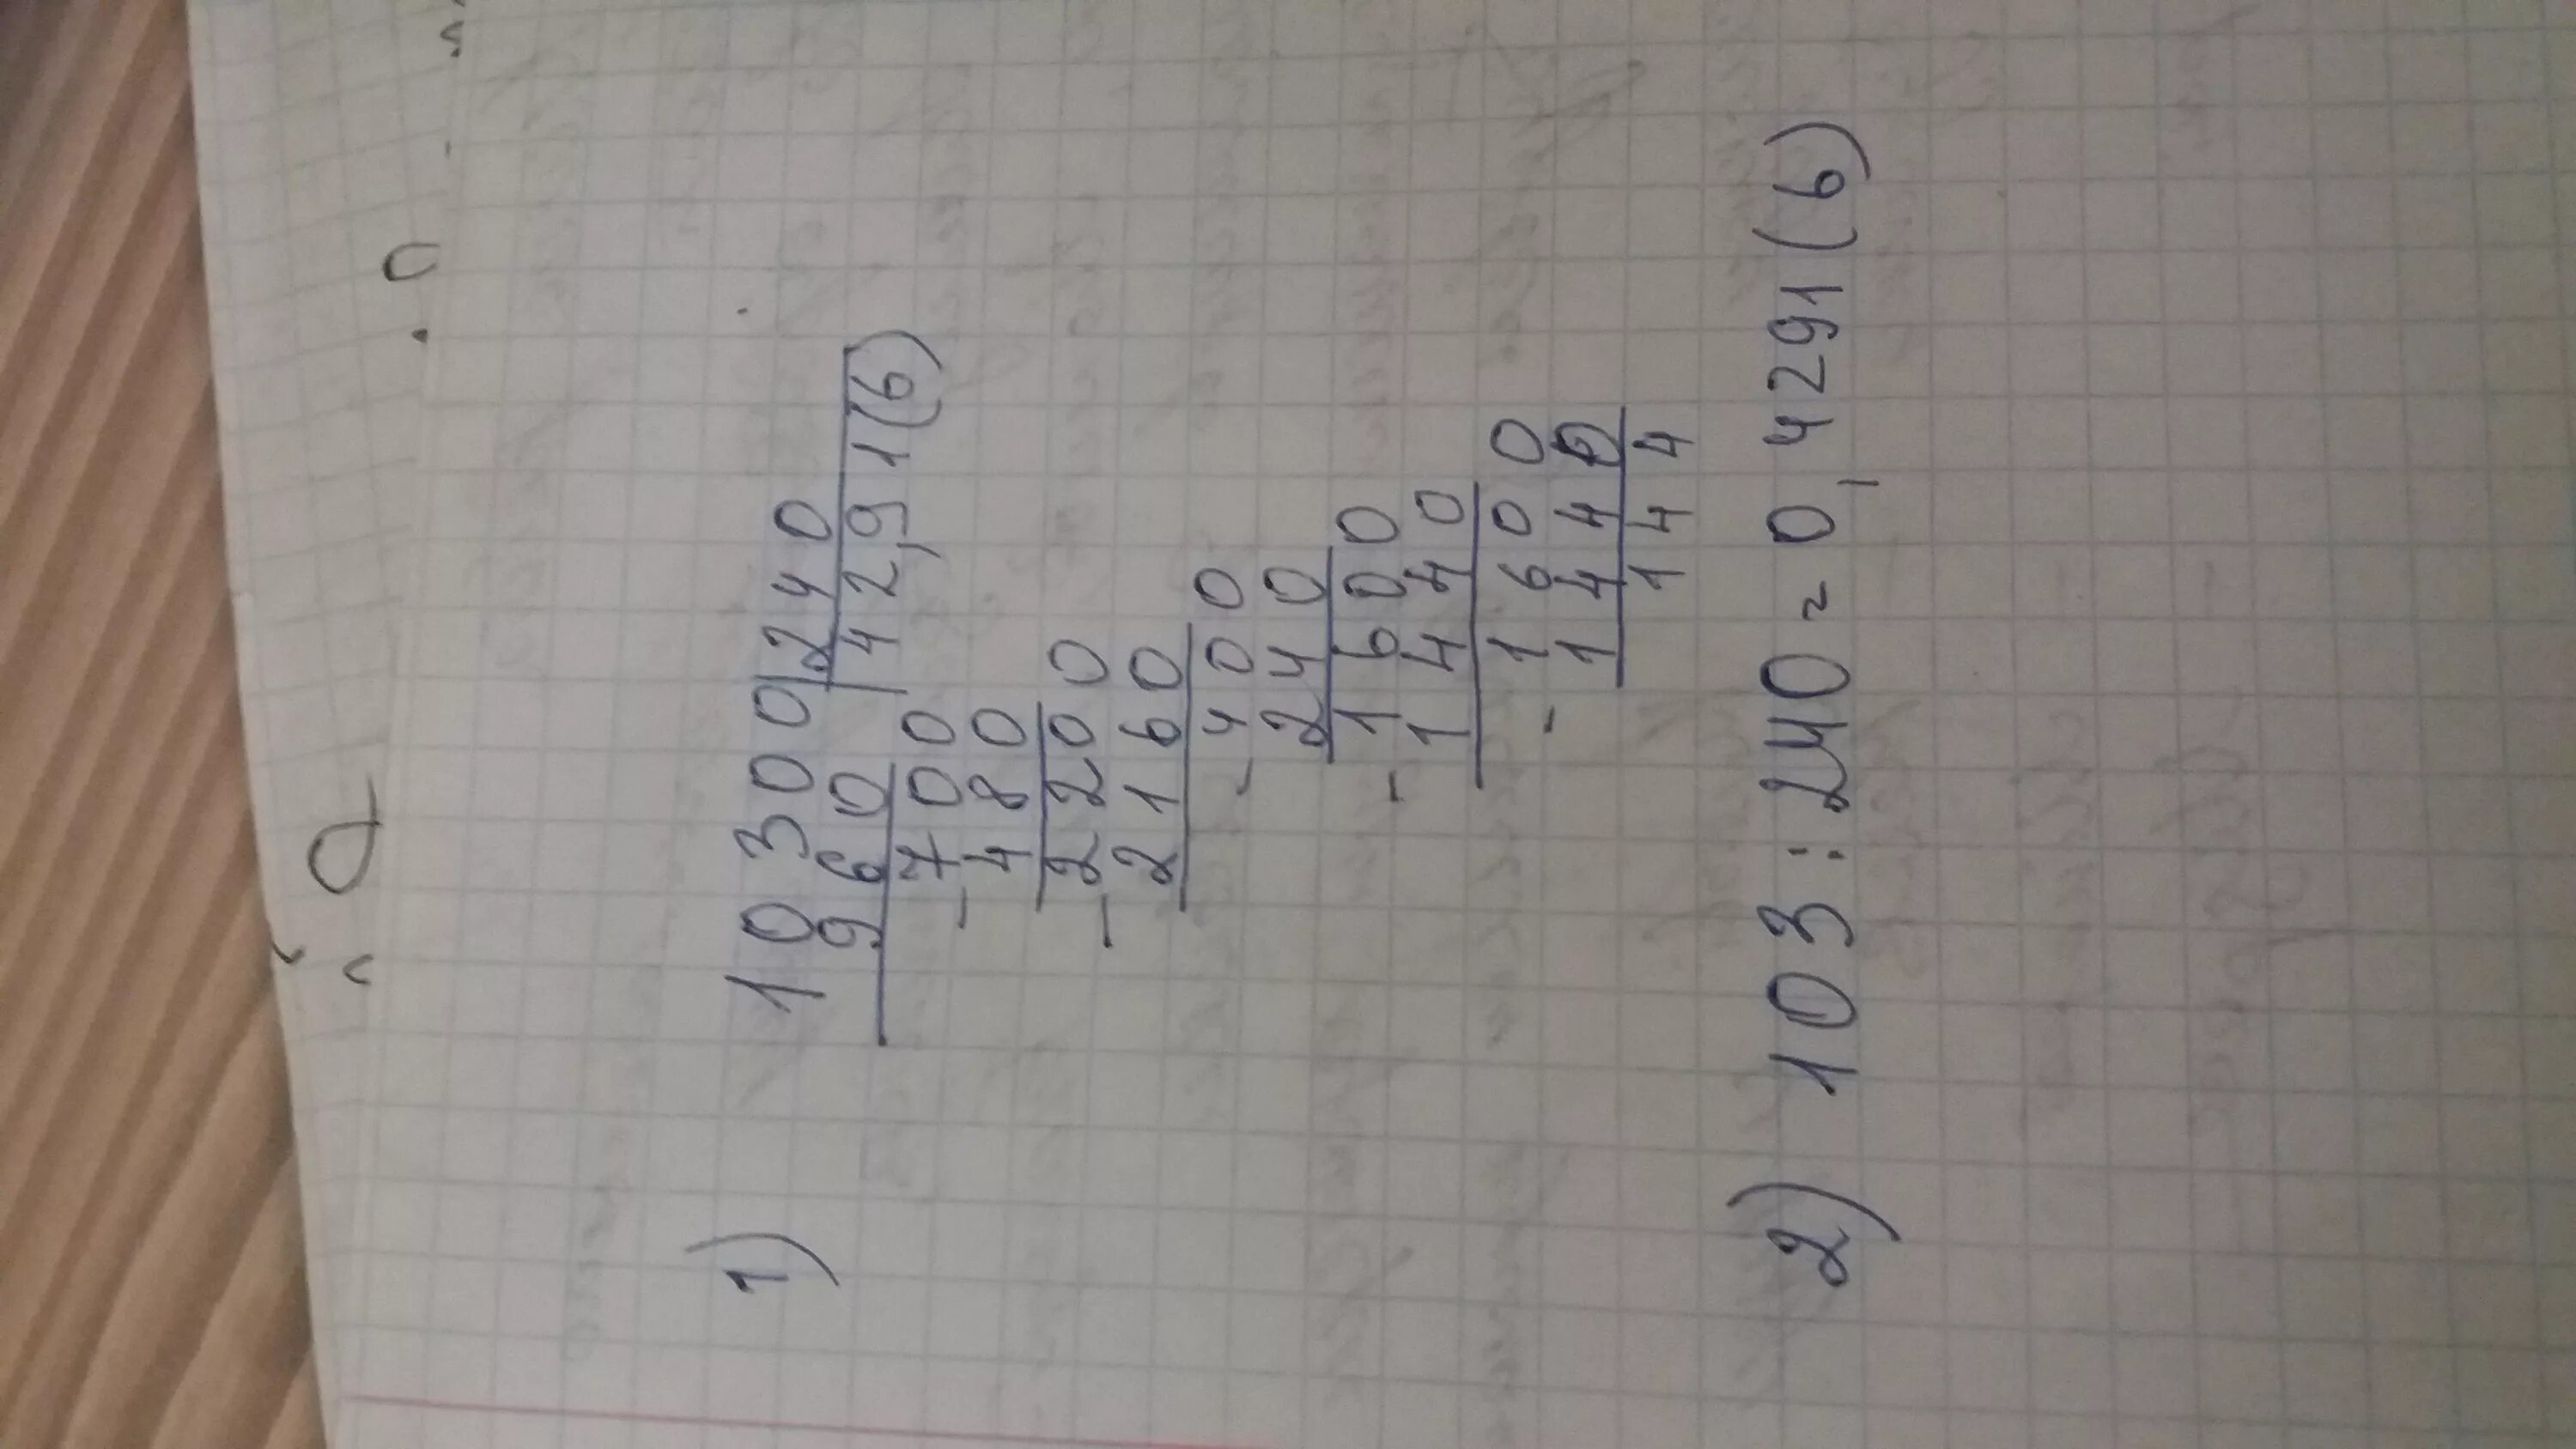 1) 10300 240
960 42,91(6)
- 700
480
- 2200
2160
- 400
240
- 1600
1440
- 1600
1440
144
2) 103 : 240 = 0,4291(6)